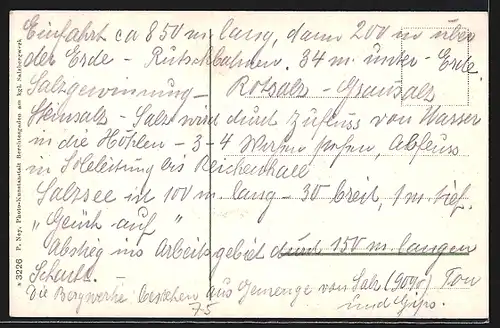 Einfahrt ca 850 m lang, dann 200 m über
der Erde - Rutschbahnen. 34 m. unter - Erde.
Salzgewinnung - Rotsalz - Grausalz
Steinsalz - Salz wird durch Zufluss von Wasser
in die Höhlen - 3-4 Abfluss
in Soleleitung bis Reichenhall
Salzsee ist 100 m lang - 30 breit, 1 m tief.
"Glück auf"
Abstieg ins Arbeitsgebiet durch 150 m. langen
Schacht.
Die Bergwerke bestehen aus Gemenge von Salz (90%) Ton
und Gips.
75
N 3226 P. Ney, Photo-Kunstanstalt Berchtesgaden am kgl. Salzbergwerk.